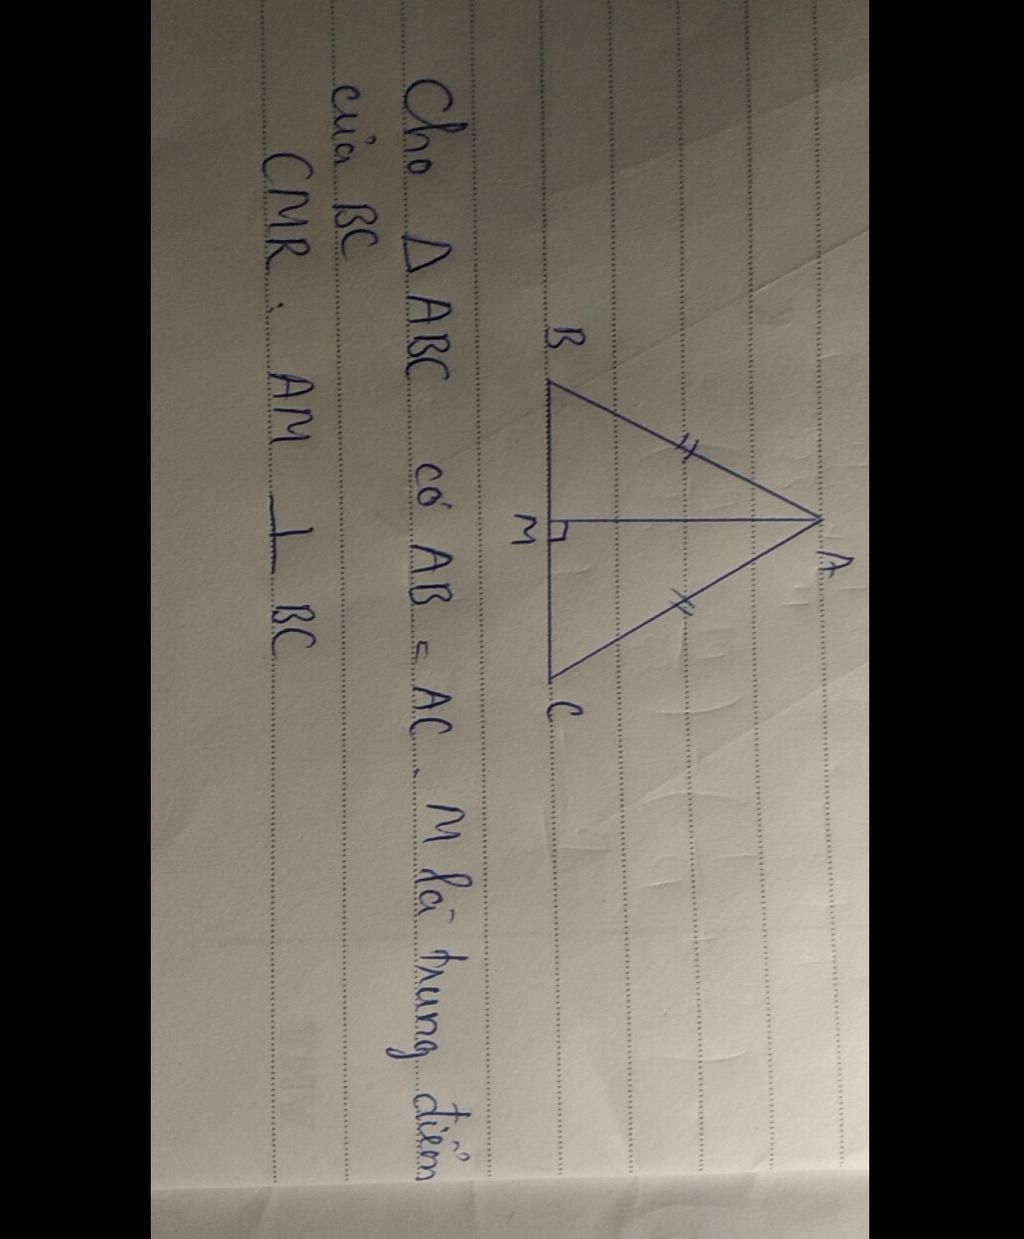 A
B
M
C
Cho Δ ABC có AB = AC. M là trung điểm
của BC
CMR : AM ⊥ BC